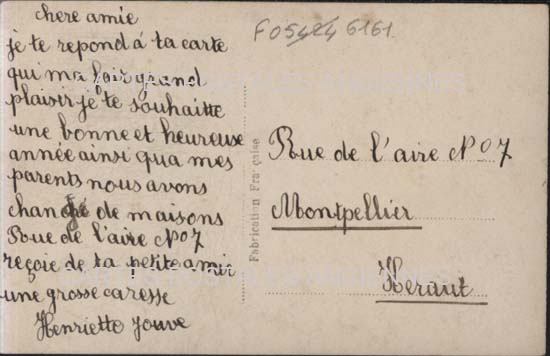 chere amie
je te repond á ta carte
qui ma fair grand
plaisir je te souhaitte
une bonne et heureuse
année ainsi qua mes
parents nous avons
changé de maisons
Rue de l'aire No 7
reçoie de ta petite amie
une grosse caresse
Henriette Jouve
Fabrication Française
6161.
Rue de l'aire No 7
Montpellier
Heraut